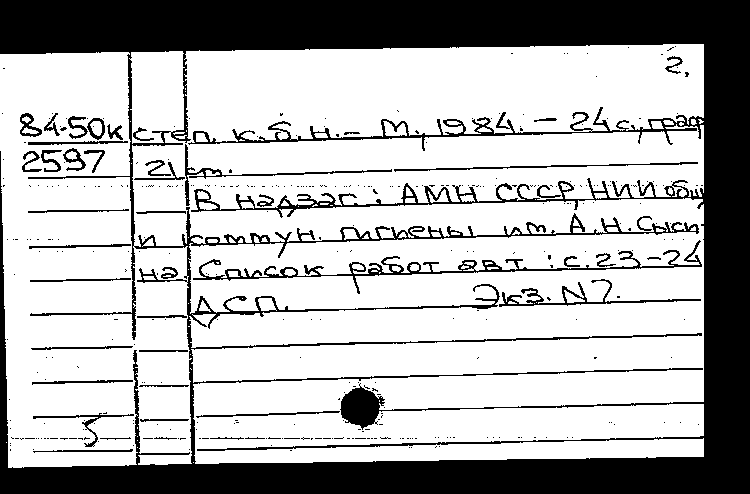 2.
84-50к степ. к.б.н. - М., 1984. - 24 с., граф
2597 21 см.
В надзаг.: АМН СССР, НИИ общ
и коммун. гигиены им. А.Н. Сыси-
на. Список работ авт.: с. 23-24
ДСП. Экз. N 7.
5